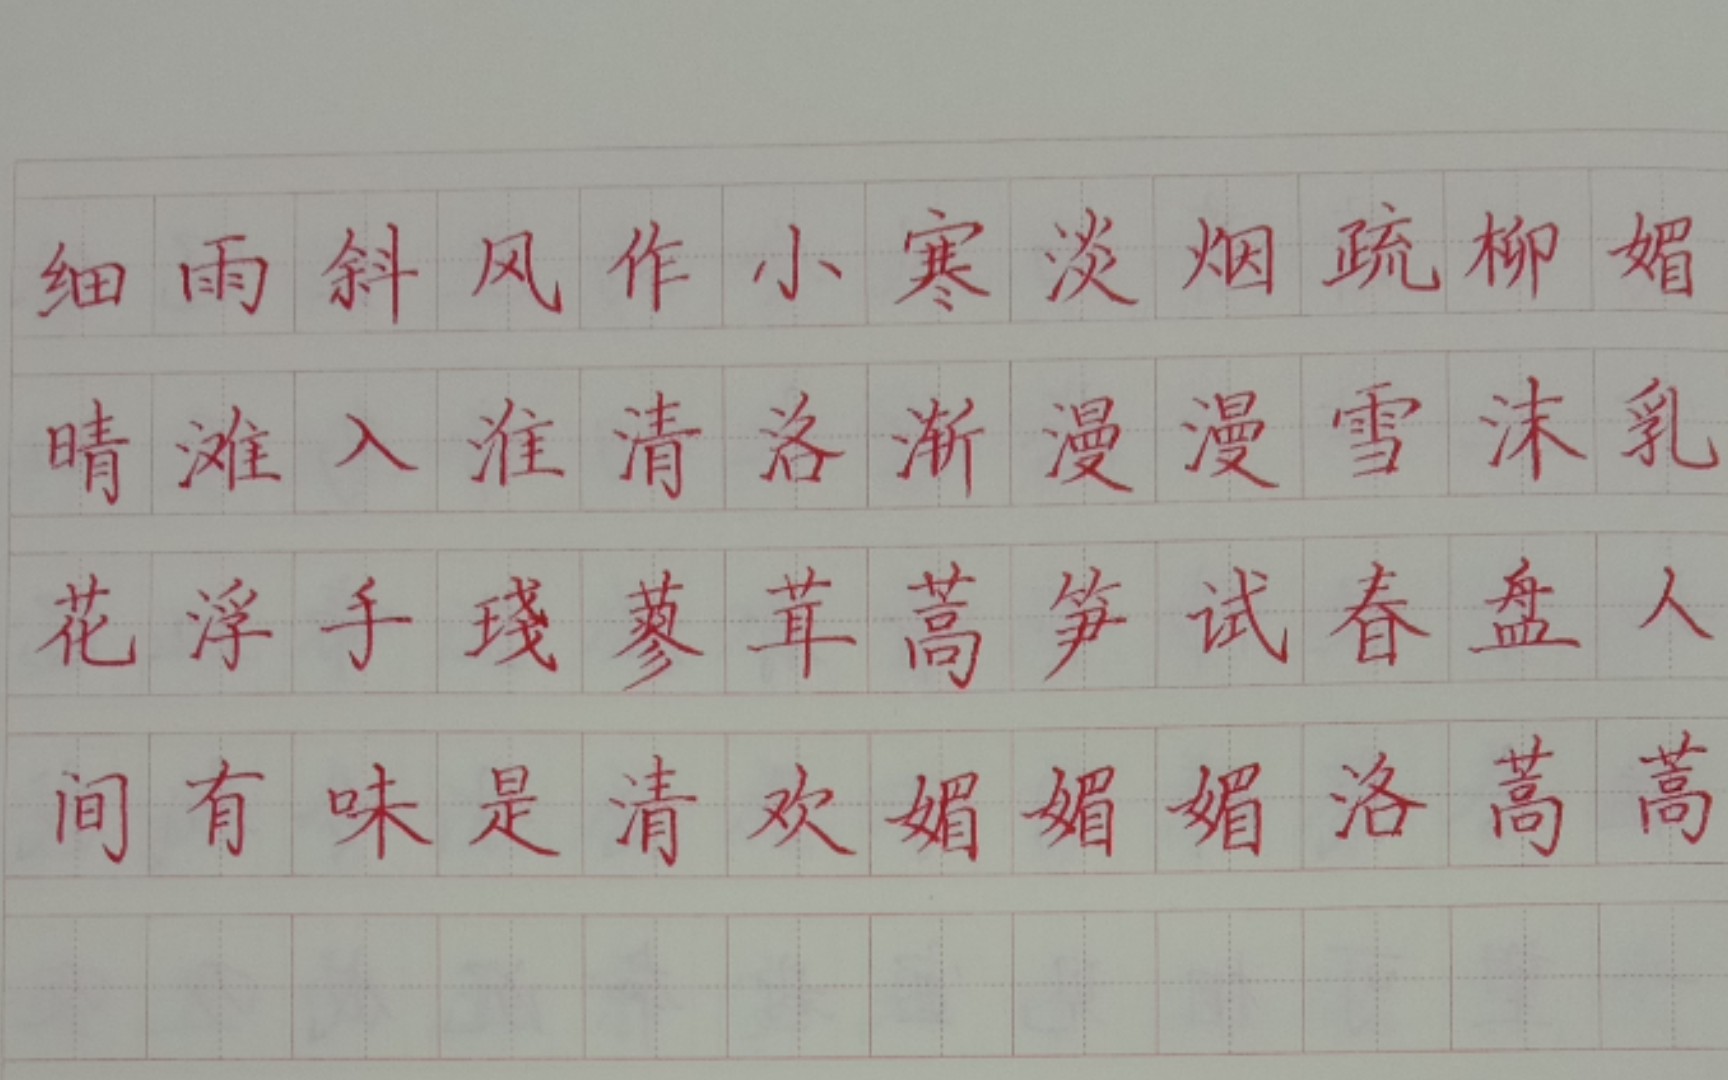 细雨斜风作小寒淡烟疏柳媚
晴滩入淮清洛渐漫漫雪沫乳
花浮手琖蓼茸蒿笋试春盘人
间有味是清欢媚媚媚洛蒿蒿